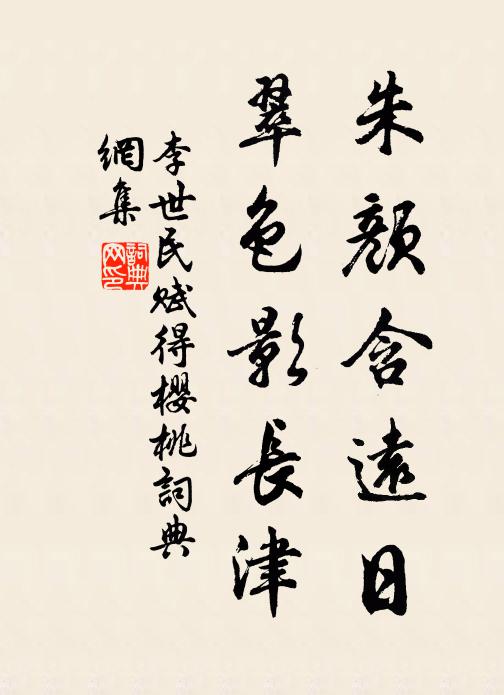 朱顏含遠日
翠色影長津
李世民賦得櫻桃詞典
網集
詞典
网印